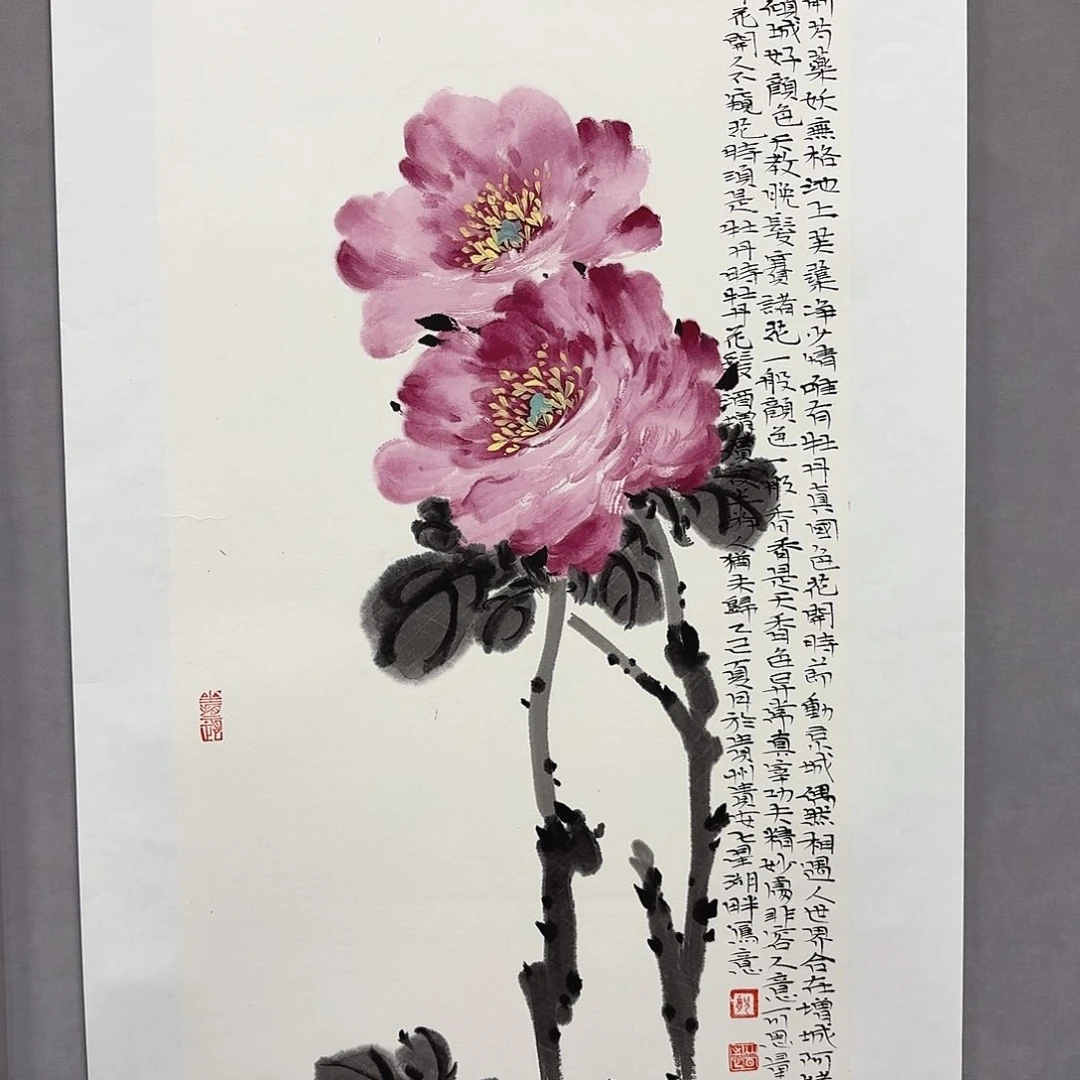 前芍藥妖無格池上芙蕖净少情唯有牡丹真國色花開時節動京城偶然相遇人世界合在增城阿姥
傾城好顏色天教晚發賽諸花一般顏色一般香香是天香色異常真宰功夫精妙處非容人意可思量
花開人不窺花時須是牡丹時牡丹花發酒增價夜半游人猶未歸乙巳夏月於貴州貴安七星湖畔寫意